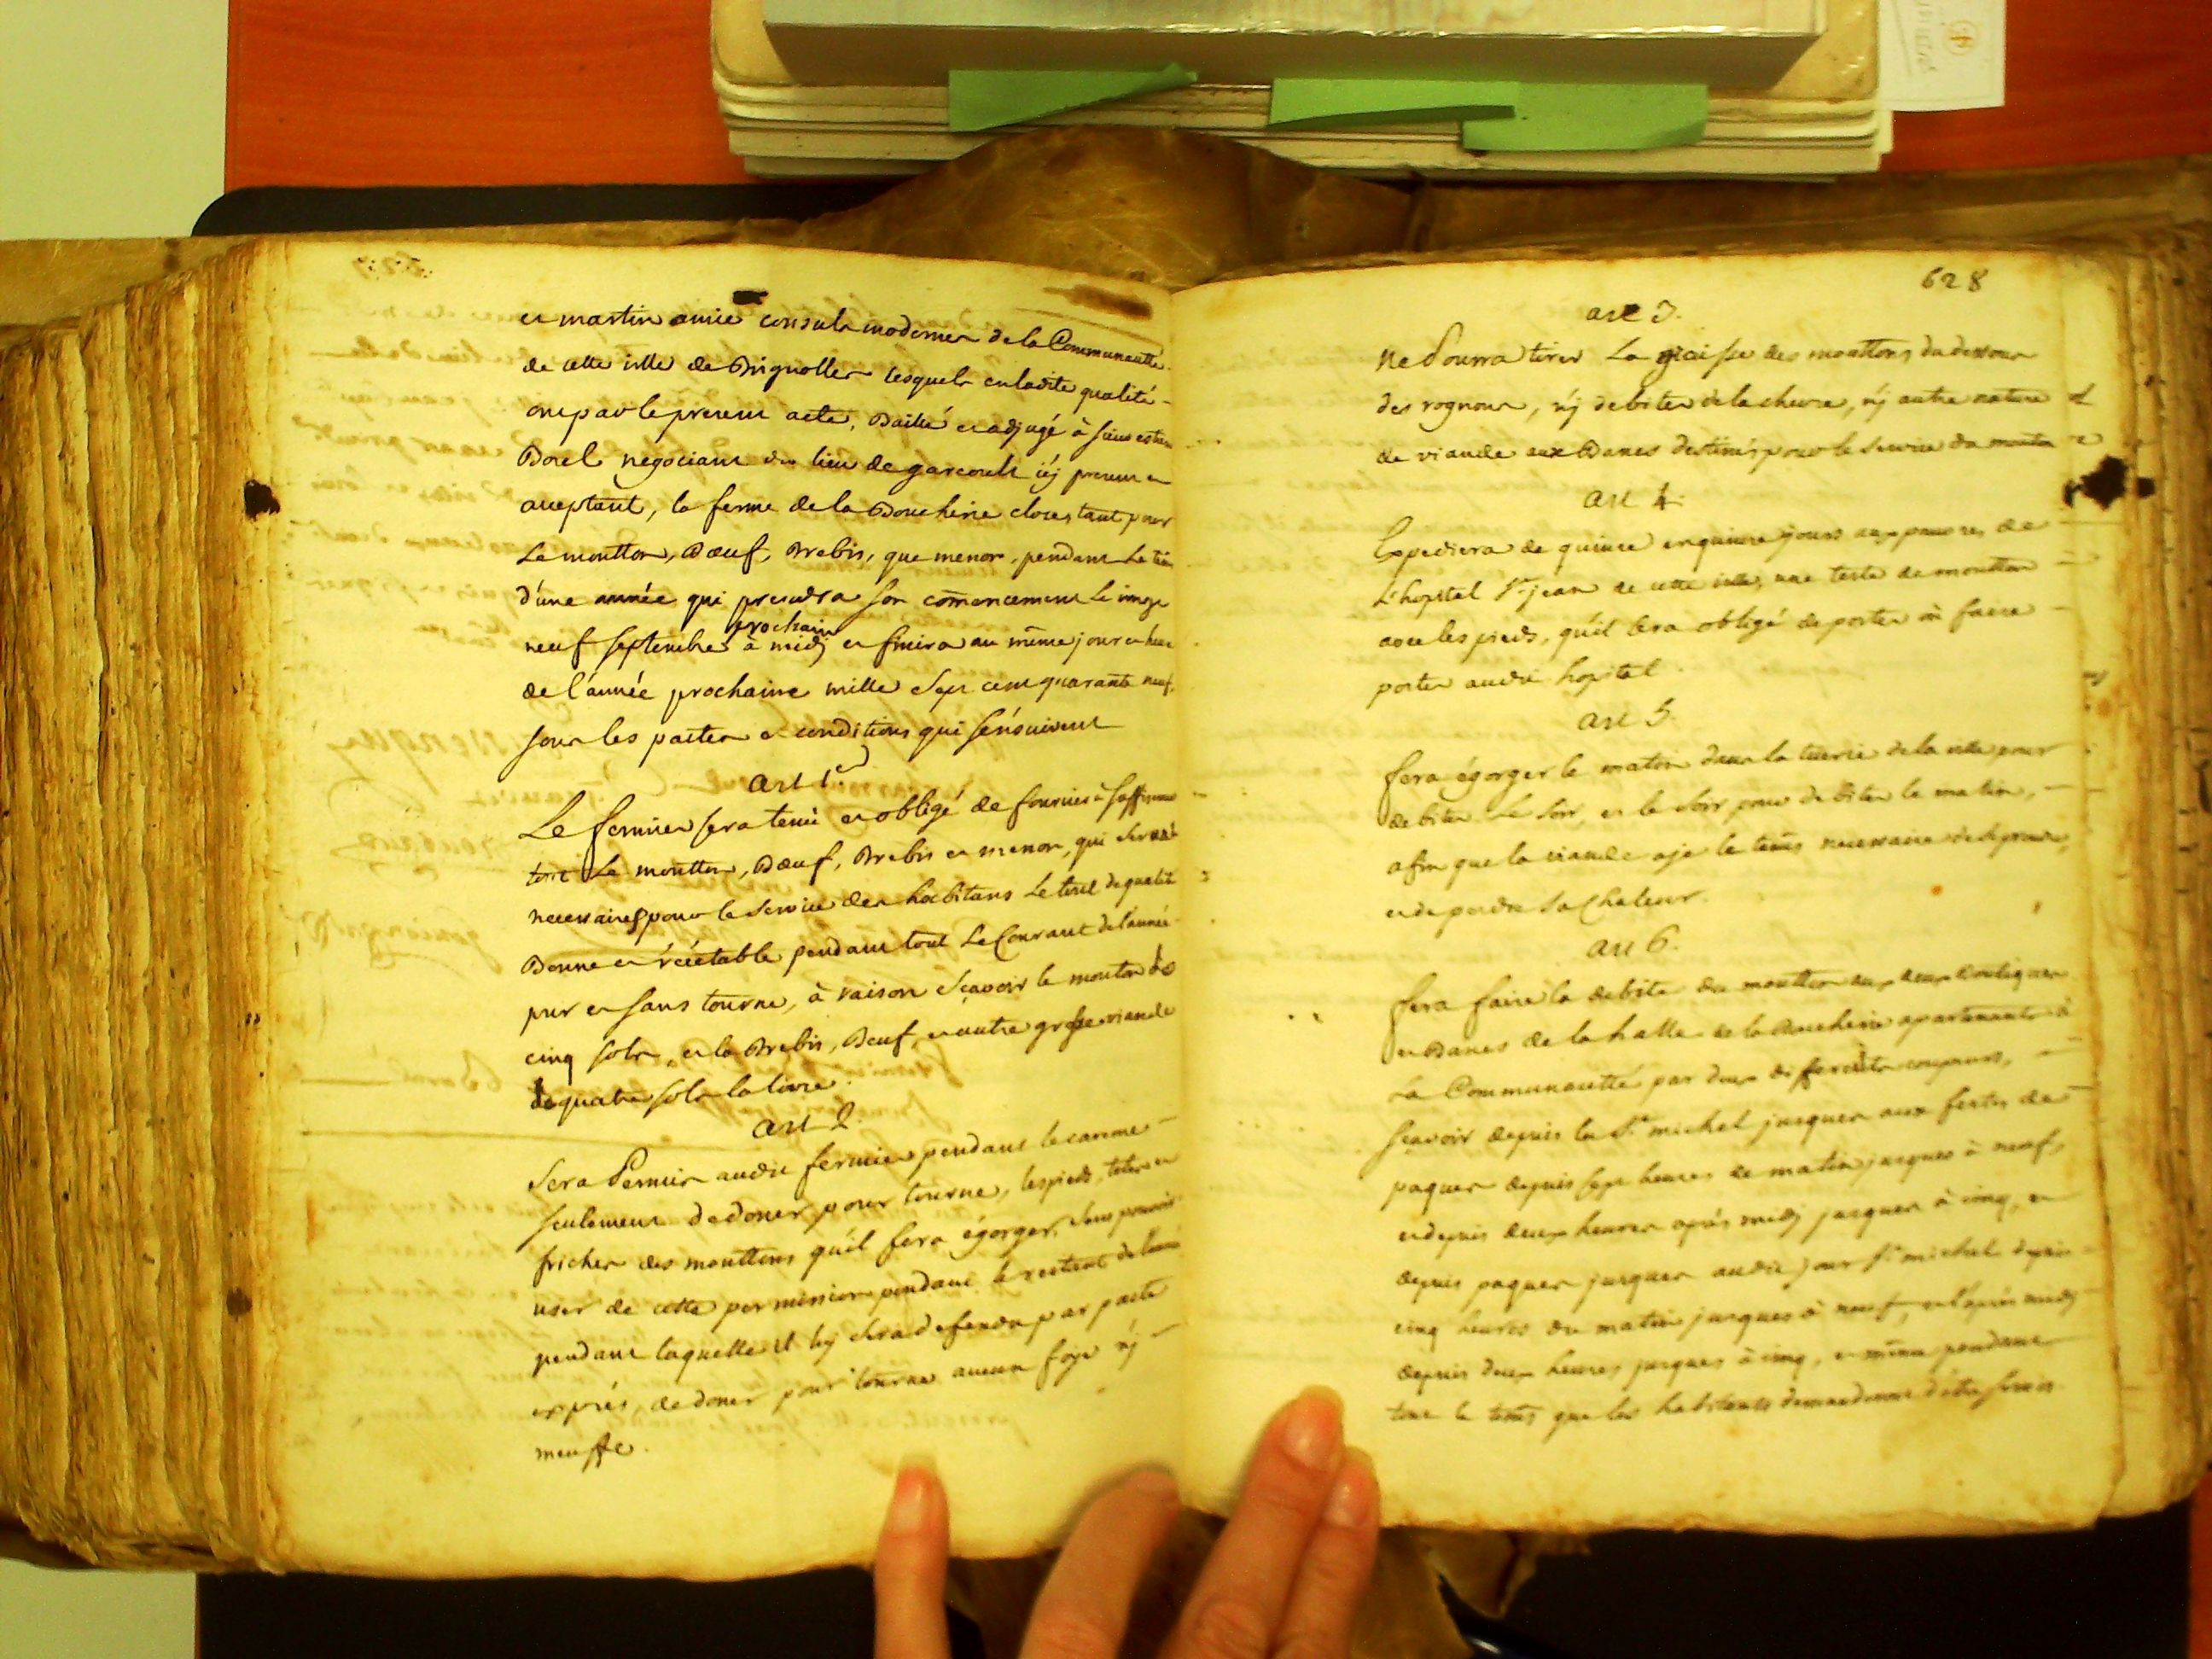 et martin amic consuls modernes de la Communautté
de cette ville de Brignolles lesquels en ladite qualité
ont par le present acte, Baillé et adjugé à sieur
Borel negociant du lieu de garcoult icy present et
acceptant, la ferme de la Boucherie close, tant pour
Le moutton, Bœuf, Brebis, que menon, pendant Le
d'une année qui prendra son comencement Le vingt
prochain
neuf septembre à midj et finira au même jour et heure
de l'année prochaine mille sept cent quarante neuf,
sous les pactes et conditions qui s'ensuivent
art 1er
Le fermier sera tenu et obligé de fournir à suffisance
Le moutton, Bœuf, Brebis et menon, qui sera
necessaire pour le service des habitans Le tout de qualité
Bonne et recétable pendant tout Le Courant de l'année
pur et sans tourne, à raison sçavoir le mouton de
cinq sols, et la Brebis, Beuf, et autre grosse viande
de quatre sols la livre.
art 2.
Sera Permis audit fermier pendant le careme
seulement de doner pour tourne, les pieds, tetes et
friches des mouttons qu'il fera égorger, sans pouvoir
user de cette permission pendant le restant de l'année
pendant laquelle il luy sera defendu par pacte
exprés, de doner pour tourne aucun foje nj
meusse.
628
art 3.
Ne Pourra tirer La graisse des mouttons du dessous
des rognons, nj debiter de la chevre, nj autre nature
de viande aux Bancs destinés pour le service du mouton
art 4.
Expediera de quinze en quinze jours aux pauvres de
L'hopital St jean de cette ville, une teste de moutton
avec les pieds, qu'il sera obligé de porter ou faire
porter audit hopital.
art 5.
fera égorger le matin dans la tuerie de la ville pour
debiter Le soir, et le soir pour debiter le matin,
afin que la viande aje le tems necessaire de
et de perdre sa Chaleur.
art 6.
fera faire la debite du moutton aux deux Boutiques
et Bancs de la halle de la Boucherie apartenants à
La Communautté par deux differents coupeurs,
sçavoir depuis la St michel jusques aux festes de
paques depuis sept heures de matin jusques à neuf,
et depuis deux heures aprés midj jusques à cinq, et
depuis paques jusques audit jour St michel depuis
cinq heures du matin jusques à neuf, et l'après midj
depuis deux heures jusques à cinq, et même pendant
tout le tems que les habitants demanderont d'être servis